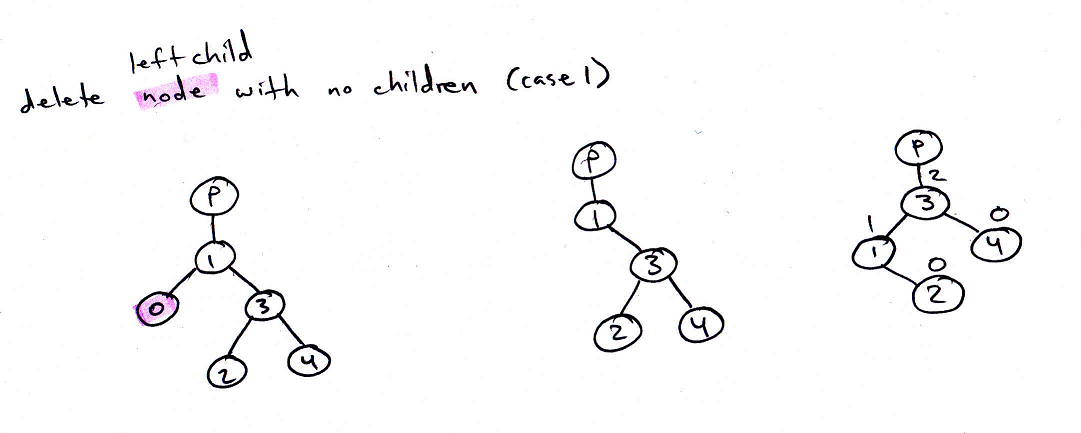 left child
delete node with no children (case 1)
P
1
0
3
2
4
P
1
3
2
4
P
2
3
1
0
1
4
0
2